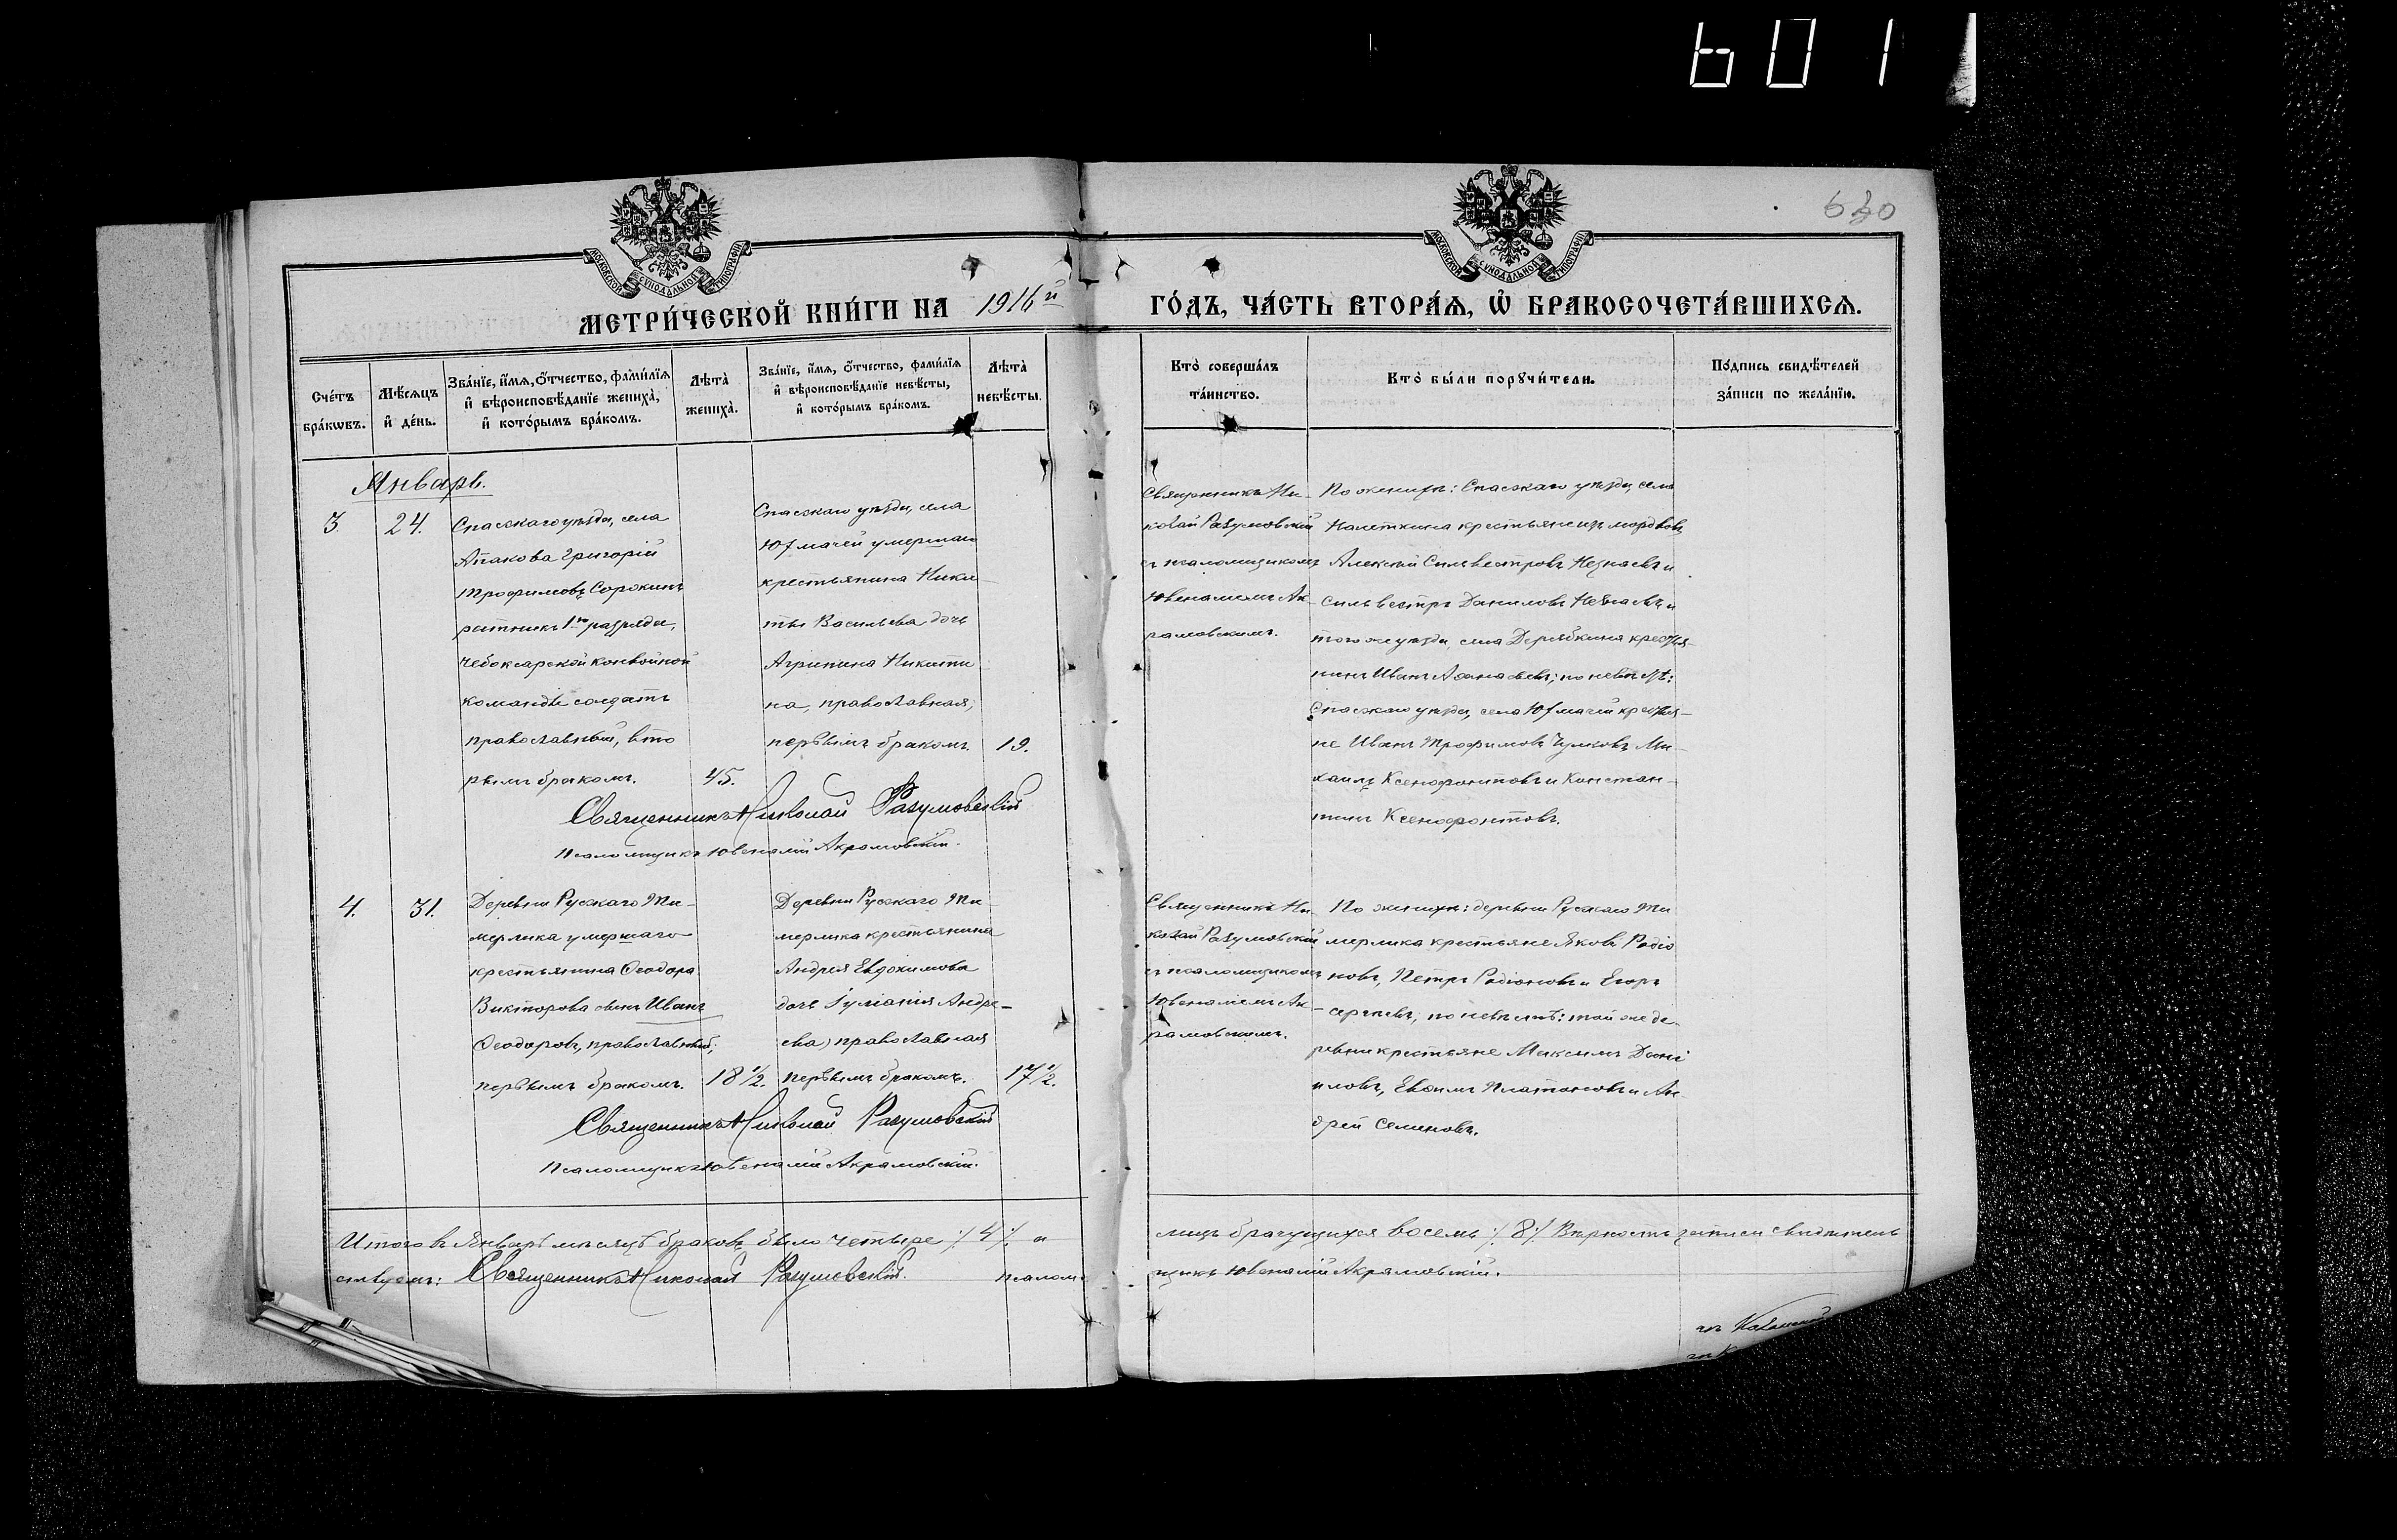 601
630
МОСКОВСКОЙ СѴНОДАЛЬНОЙ ТИПОГРАФІИ
МОСКОВСКОЙ СѴНОДАЛЬНОЙ ТИПОГРАФІИ
МЕТРИ́ЧЕСКОЙ КНИ́ГИ НА 1916й ГО́ДЪ, ЧА́СТЬ ВТОРА́Ѧ, Ѽ БРАКОСОЧЕТА́ВШИХСѦ.
Сче́тъ бра́кѡвъ.
Мѣ́сѧцъ и҆ де́нь.
Зва́нїе, и҆́мѧ, ѻ҆́тчество, фами́лїѧ
и҆ вѣроисповѣ́данїе жениха̀,
и҆ кото́рымъ бра́комъ.
Лѣта̀ жениха̀.
Зва́нїе, и҆́мѧ, ѻ҆́тчество, фами́лїѧ
и҆ вѣроисповѣ́данїе невѣ́сты,
и҆ кото́рымъ бра́комъ.
Лѣта̀ невѣ́сты.
Кто̀ соверша́лъ та́инство.
Кто̀ бы́ли порꙋчи́тели.
По́дпись свидѣ́телей
за́писи по жела́нїю.
Январь.
3.
24.
Спасскаго уѣзда, села
Атакова Григорій
Трофимовъ Сорокинъ
ратникъ 1го разряда,
Чебоксарской конвойной
команды солдатъ
православный, вто
рымъ бракомъ.
45.
Спасскаго уѣзда, села
Юфмачей умершаго
крестьянина Ники-
ты Васильева дочь
Агрипина Никити
на, православная,
первымъ бракомъ.
19.
Священникъ Ни-
колай Разумовскій
съ псаломщикомъ
Ювеналіемъ Ак-
рамовскимъ.
По женихѣ: Спасскаго уѣзда, села
крестьяне изъ мордвовъ
Алексѣй Сильвестровъ и
Сильвестръ Даниловъ и
того же уѣзда, села Дерябкина крестья-
нинъ Иванъ Афанасьевъ; по невѣстѣ:
Спасскаго уѣзда, села Юфмачей крестья-
не Иванъ Трофимовъ Чумковъ Ми-
хаилъ Ксенофонтовъ и Констан-
тинъ Ксенофонтовъ.
Священникъ Николай Разумовскій
Псаломщикъ Ювеналій Акрамовскій.
4.
31.
Деревни Русскаго Ти-
мерлика умершаго
крестьянина Ѳеодора
Викторова сынъ Иванъ
Ѳеодоровъ, православный;
первымъ бракомъ.
18 1/2.
Деревни Русскаго Ти-
мерлика крестьянина
Андрея Евдокимова
дочь Іуліанія Андре-
ева, православная
первымъ бракомъ.
17 1/2.
Священникъ Ни-
колай Разумовскій
съ псаломщикомъ
Ювеналіемъ Ак-
рамовскимъ.
По женихѣ: деревни Русскаго Ти
мерлика крестьяне Яковъ Родіо
новъ, Петръ Родіоновъ и Егоръ
Сергѣевъ, по невѣстѣ: той же де-
ревни крестьяне Максимъ Дані
иловъ, Евѳимъ Платоновъ и Ан-
дрей Семеновъ.
Священникъ Николай Разумовскій
Псаломщикъ Ювеналій Акрамовскій.
Итого въ Январѣ мѣсяцѣ браковъ было четыре ·/. 4 ·/. а лицъ брачущихся восемь ·/. 8 ·/. Вѣрность записи свидѣтель
ствуемъ: Священникъ Николай Разумовскій. псалом-
щикъ Ювеналій Акрамовскій.